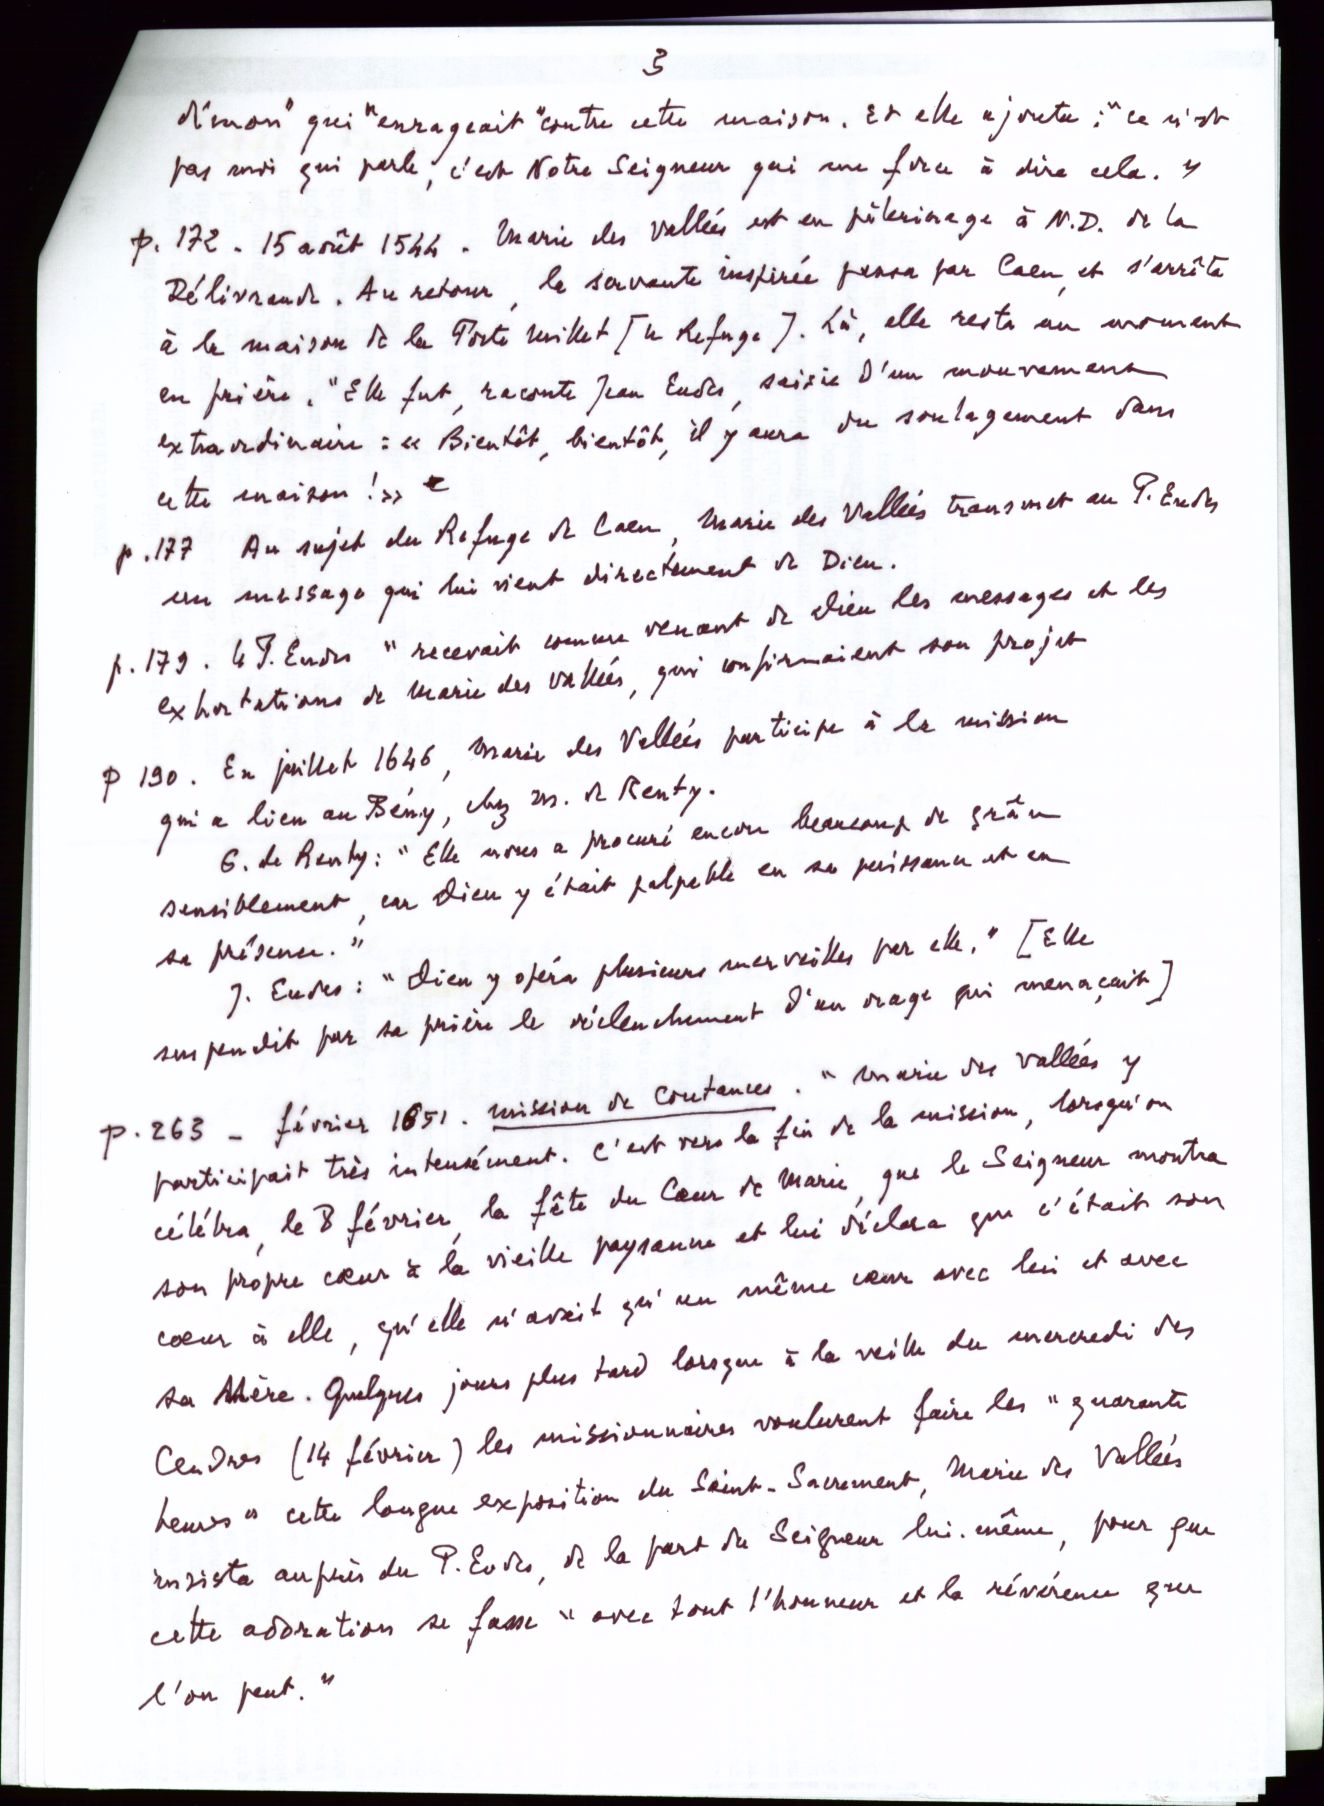 3
démon" qui "enrageait "contre cette maison. Et elle ajouta : "ce n'est
pas moi qui parle, c'est Notre Seigneur qui me force à dire cela. "
p. 172 - 15 août 1544 . Marie des Vallées est en pèlerinage à N.D. de la
Délivrande. Au retour, la servante inspirée passa par Caen, et s'arrêta
à la maison de la Porte Millet [le Refuge]. Là, elle resta un moment
en prière. "Elle fut, raconte Jean Eudes, saisie d'un mouvement
extraordinaire : « Bientôt, bientôt, il y aura du soulagement dans
cette maison !»
p. 177 Au sujet du Refuge de Caen, Marie des Vallées transmet au P. Eudes
un message qui lui vient directement de Dieu.
p. 179. Le P. Eudes "recevait comme venant de Dieu les messages et les
exhortations de Marie des Vallées, qui confirmaient son projet
p 190. En juillet 1646, Marie des Vallées participe à la mission
qui a lieu au Bény, chez M. de Renty.
G. de Renty : "Elle nous a procuré encore beaucoup de grâce
sensiblement, car Dieu y était palpable en sa puissance et en
sa présence."
J. Eudes : "Dieu y opéra plusieurs merveilles par elle." [Elle
suspendit par sa prière le déclenchement d'un orage qui menaçait]
p. 263 - février 1651. mission de Coutances. "Marie des Vallées y
participait très intensément. C'est vers la fin de la mission, lorsqu'on
célébra, le 8 février, la fête du Cœur de Marie, que le Seigneur montra
son propre cœur à la vieille paysanne et lui déclara que c'était son
cœur à elle, qu'elle n'avait qu'un même cœur avec lui et avec
sa Mère. Quelques jours plus tard lorsque à la veille du mercredi des
Cendres (14 février) les missionnaires voulurent faire les "quarante
heures" cette longue exposition du Saint-Sacrement, Marie des Vallées
insista auprès du P. Eudes, de la part du Seigneur lui-même, pour que
cette adoration se fasse "avec tout l'honneur et la révérence que
l'on peut."